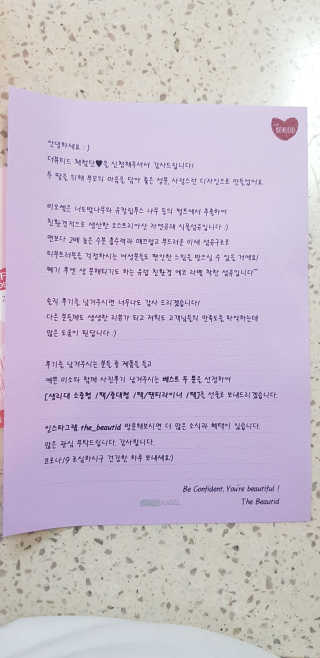 안녕하세요 :)
더뷰티드 체험단♥을 신청해주셔서 감사드립니다!
두 딸을 위해 부모의 마음을 담아 좋은 성분, 사랑스런 디자인으로 만들었어요.
너도밤나무와 유칼립투스 나무 등의 펄프에서 추출하여
친환경적으로 생산한 오스트리아산 자연유래 식물섬유입니다 :)
면보다 2배 높은 수분 흡수력과 매끄럽고 부드러운 미세 섬유구조로
피부트러블을 걱정하시는 여성분들도 편안한 느낌을 받으실 수 있을 거에요!
폐기 후엔 생 분해되기도 하는 유럽 친환경 에코 라벨 착한 섬유입니다~
솔직 후기를 남겨주시면 너무나도 감사 드리겠습니다!
다른 분들께도 생생한 리뷰가 되고 저희도 고객님들의 만족도를 파악하는데
많은 도움이 된답니다 :)
후기를 남겨주시는 분들 중 제품을 들고
예쁜 미소와 함께 사진후기 남겨주시는 베스트 두 분을 선정하여
[생리대 소중형 1팩/중대형 1팩/팬티라이너 1팩]을 선물로 보내드리겠습니다.
인스타그램, the_beautid 방문해보시면 더 많은 소식과 혜택이 있습니다.
많은 관심 부탁드립니다. 감사합니다.
코로나19 조심하시구 건강한 하루 보내세요:)
Be Confident, You're beautiful !
The Beautid